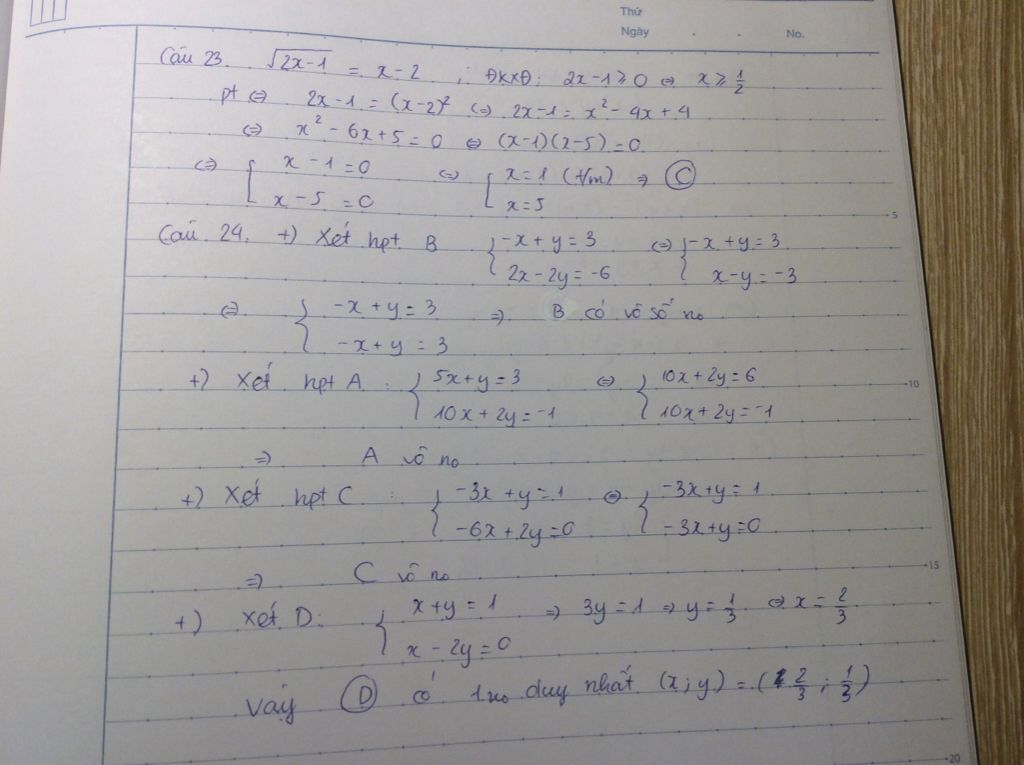 Thứ
Ngày . . No.
Câu 23. √2x-1 = x-2 ; ĐKXĐ: 2x-1 ≥ 0 ⇔ x ≥ 1/2
pt ⇔ 2x-1 = (x-2)² ⇔ 2x-1 = x² - 4x + 4
⇔ x² - 6x + 5 = 0 ⇔ (x-1)(x-5) = 0
⇔ [ x - 1 = 0 ⇔ [ x = 1 (t/m) ⇒ C
x - 5 = 0 x = 5
5
Câu 24. +) Xét hpt B { -x + y = 3 ⇔ { -x + y = 3
2x - 2y = -6 x - y = -3
⇔ { -x + y = 3 ⇒ B có vô số no
-x + y = 3
+) Xét hpt A : { 5x + y = 3 ⇔ { 10x + 2y = 6
10
10x + 2y = -1 10x + 2y = -1
⇒ A vô no
+) Xét hpt C : { -3x + y = 1 ⇔ { -3x + y = 1
-6x + 2y = 0 -3x + y = 0
⇒ C vô no
15
+) Xét D: { x + y = 1 ⇒ 3y = 1 ⇒ y = 1/3 ⇔ x = 2/3
x - 2y = 0
Vậy D có 1 no duy nhất (x; y) = (2/3 ; 1/3)
20